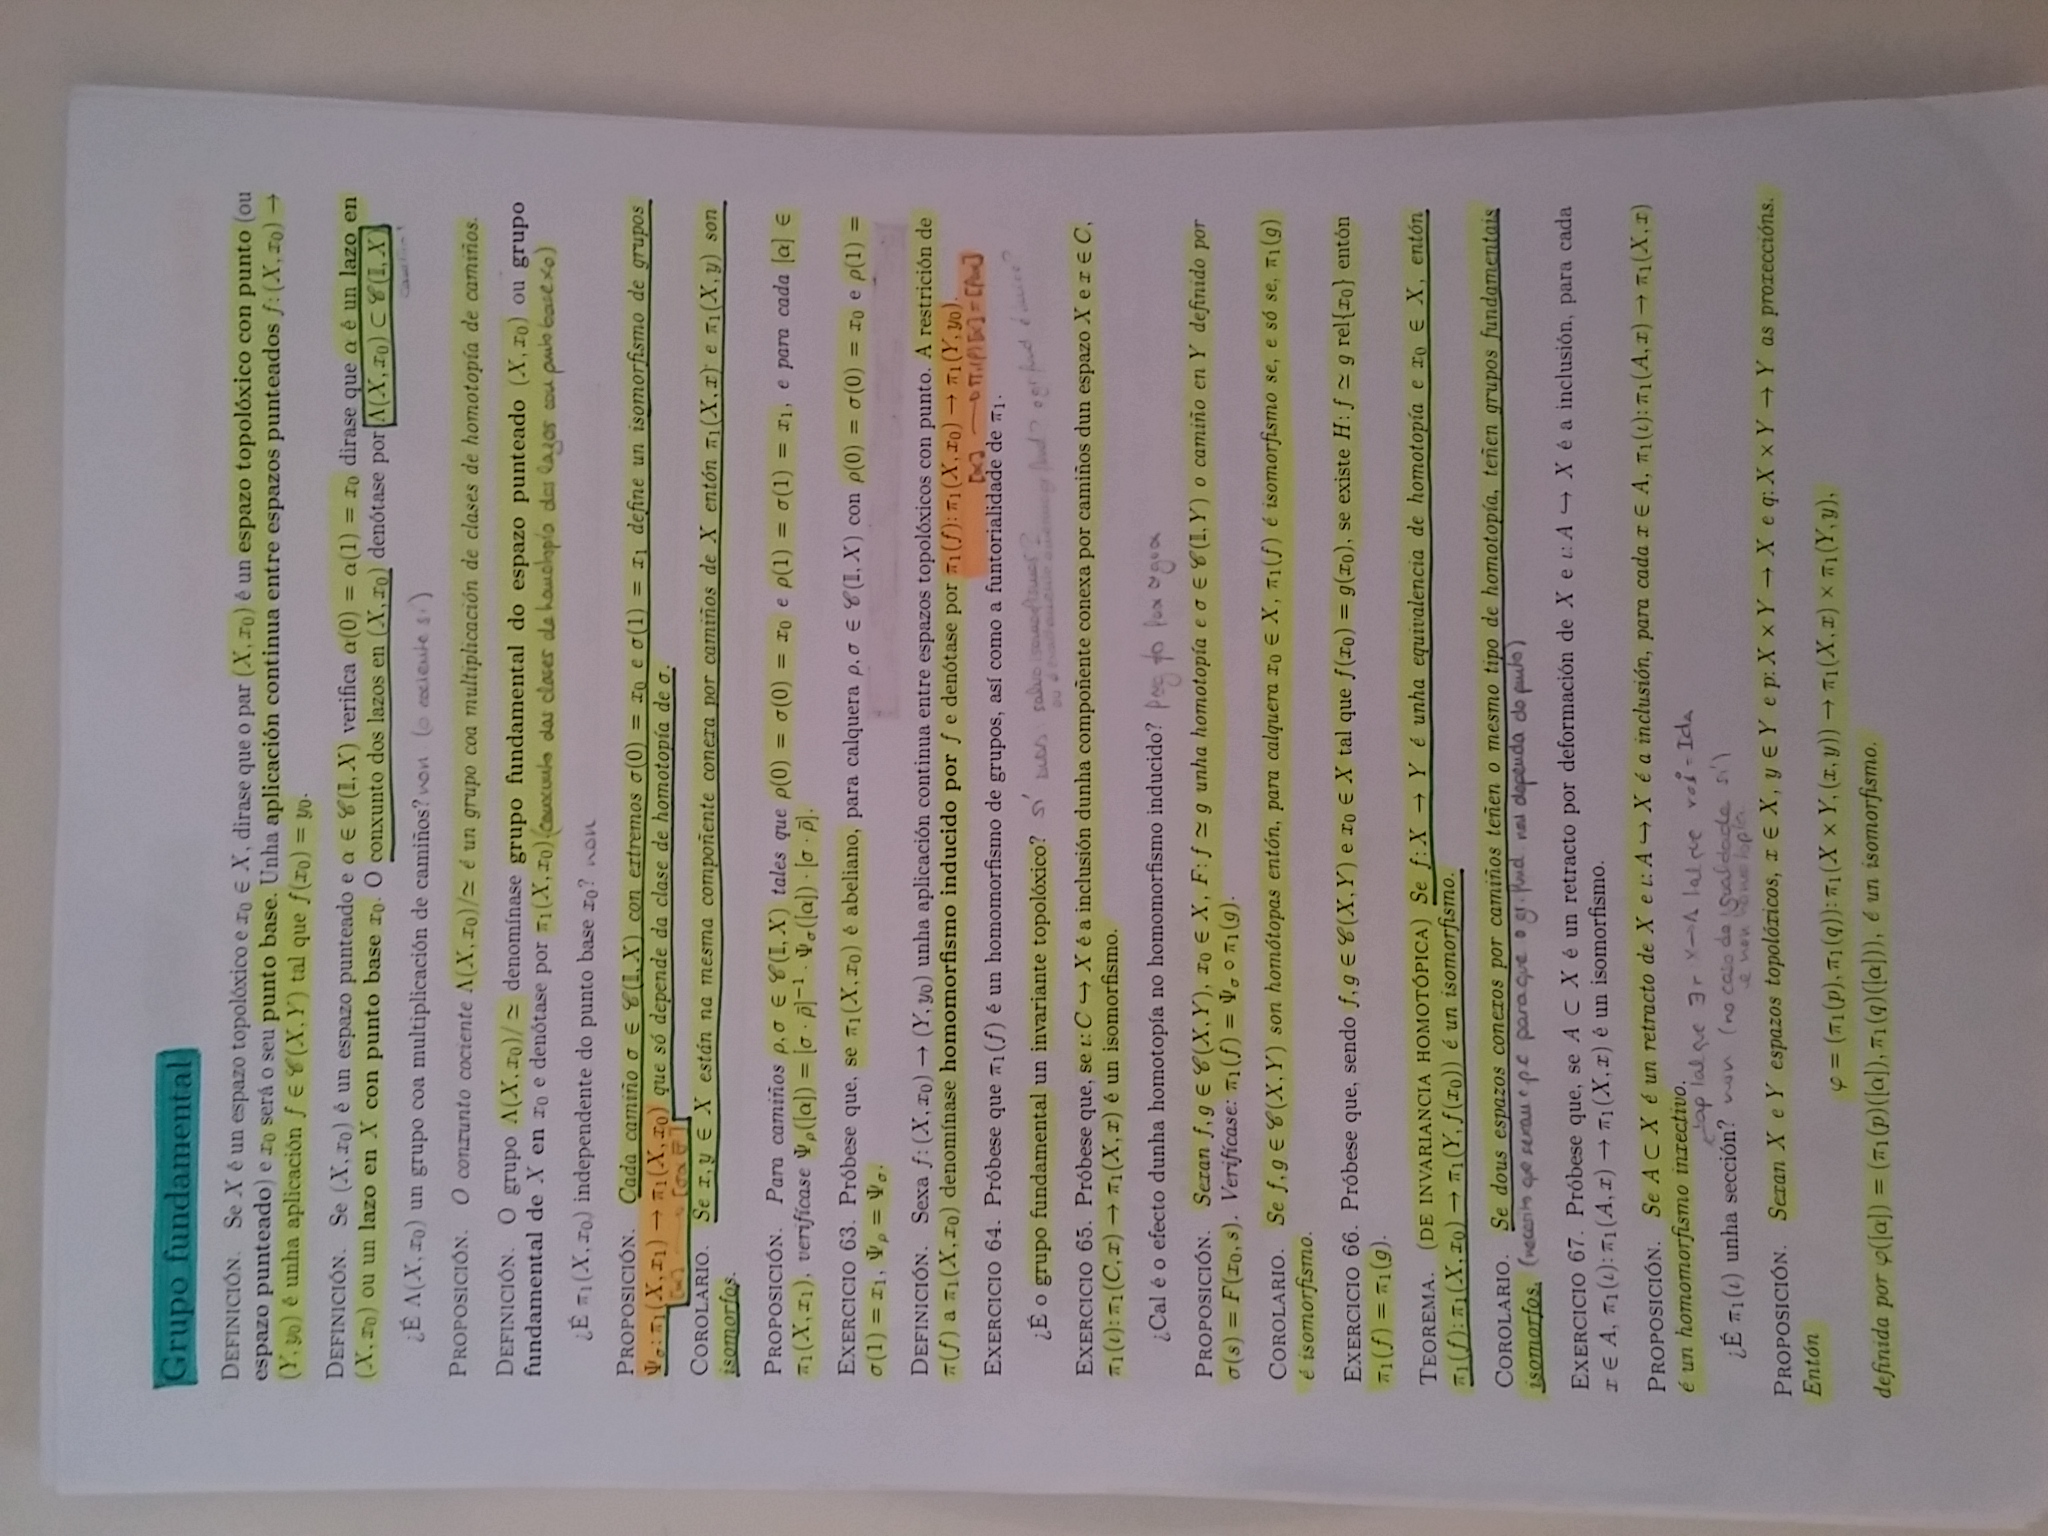 Grupo fundamental
DEFINICIÓN. Se X é un espazo topolóxico e x₀ ∈ X, dirase que o par (X, x₀) é un espazo topolóxico con punto (ou
espazo punteado) e x₀ será o seu punto base. Unha aplicación continua entre espazos punteados f: (X, x₀) →
(Y, y₀) é unha aplicación f ∈ 𝒞(X, Y) tal que f(x₀) = y₀.
DEFINICIÓN. Se (X, x₀) é un espazo punteado e α ∈ 𝒞(𝕀, X) verifica α(0) = α(1) = x₀ dirase que α é un lazo en
(X, x₀) ou un lazo en X con punto base x₀. O conxunto dos lazos en (X, x₀) denótase por Λ(X, x₀) ⊂ 𝒞(𝕀, X)
¿É Λ(X, x₀) un grupo coa multiplicación de camiños? non (o cociente si)
PROPOSICIÓN. O conxunto cociente Λ(X, x₀)/≃ é un grupo coa multiplicación de clases de homotopía de camiños.
DEFINICIÓN. O grupo Λ(X, x₀)/≃ denomínase grupo fundamental do espazo punteado (X, x₀) ou grupo
fundamental de X en x₀ e denótase por π₁(X, x₀) (conxunto das clases de homotopía dos lazos con punto base x₀)
¿É π₁(X, x₀) independente do punto base x₀? non
PROPOSICIÓN. Cada camiño σ ∈ 𝒞(𝕀, X) con extremos σ(0) = x₀ e σ(1) = x₁ define un isomorfismo de grupos
Ψσ: π₁(X, x₁) → π₁(X, x₀) que só depende da clase de homotopía de σ.
[α] → [σασ̄]
COROLARIO. Se x, y ∈ X están na mesma compoñente conexa por camiños de X entón π₁(X, x) e π₁(X, y) son
isomorfos.
PROPOSICIÓN. Para camiños ρ, σ ∈ 𝒞(𝕀, X) tales que ρ(0) = σ(0) = x₀ e ρ(1) = σ(1) = x₁, e para cada [α] ∈
π₁(X, x₁), verifícase Ψρ([α]) = [σ · ρ̄]⁻¹ · Ψσ([α]) · [σ · ρ̄].
EXERCICIO 63. Próbese que, se π₁(X, x₀) é abeliano, para calquera ρ, σ ∈ 𝒞(𝕀, X) con ρ(0) = σ(0) = x₀ e ρ(1) =
σ(1) = x₁, Ψρ = Ψσ.
DEFINICIÓN. Sexa f: (X, x₀) → (Y, y₀) unha aplicación continua entre espazos topolóxicos con punto. A restrición de
π(f) a π₁(X, x₀) denomínase homomorfismo inducido por f e denótase por π₁(f): π₁(X, x₀) → π₁(Y, y₀).
[α] → π₁(f)[α] = [f∘α]
EXERCICIO 64. Próbese que π₁(f) é un homomorfismo de grupos, así como a funtorialidade de π₁.
¿É o grupo fundamental un invariante topolóxico? si
EXERCICIO 65. Próbese que, se ι: C ↪ X é a inclusión dunha compoñente conexa por camiños dun espazo X e x ∈ C,
π₁(ι): π₁(C, x) → π₁(X, x) é un isomorfismo.
¿Cal é o efecto dunha homotopía no homomorfismo inducido?
PROPOSICIÓN. Sexan f, g ∈ 𝒞(X, Y), x₀ ∈ X, F: f ≃ g unha homotopía e σ ∈ 𝒞(𝕀, Y) o camiño en Y definido por
σ(s) = F(x₀, s). Verifícase: π₁(f) = Ψσ ∘ π₁(g).
COROLARIO. Se f, g ∈ 𝒞(X, Y) son homótopas entón, para calquera x₀ ∈ X, π₁(f) é isomorfismo se, e só se, π₁(g)
é isomorfismo.
EXERCICIO 66. Próbese que, sendo f, g ∈ 𝒞(X, Y) e x₀ ∈ X tal que f(x₀) = g(x₀), se existe H: f ≃ g rel{x₀} entón
π₁(f) = π₁(g).
TEOREMA. (DE INVARIANCIA HOMOTÓPICA) Se f: X → Y é unha equivalencia de homotopía e x₀ ∈ X, entón
π₁(f): π₁(X, x₀) → π₁(Y, f(x₀)) é un isomorfismo.
COROLARIO. Se dous espazos conexos por camiños teñen o mesmo tipo de homotopía, teñen grupos fundamentais
isomorfos. (necesito que sexan cpc para que o gr. fund non dependa do punto)
EXERCICIO 67. Próbese que, se A ⊂ X é un retracto por deformación de X e ι: A ↪ X é a inclusión, para cada
x ∈ A, π₁(ι): π₁(A, x) → π₁(X, x) é un isomorfismo.
PROPOSICIÓN. Se A ⊂ X é un retracto de X e ι: A ↪ X é a inclusión, para cada x ∈ A, π₁(ι): π₁(A, x) → π₁(X, x)
é un homomorfismo inxectivo.
tal que ∃ r: X→A tal que r∘i = Id_A
¿É π₁(ι) unha sección? non (no caso da igualdade si)
e non homotopía
PROPOSICIÓN. Sexan X e Y espazos topolóxicos, x ∈ X, y ∈ Y e p: X × Y → X e q: X × Y → Y as proxeccións.
Entón
φ = (π₁(p), π₁(q)): π₁(X × Y, (x, y)) → π₁(X, x) × π₁(Y, y),
definida por φ([α]) = (π₁(p)([α]), π₁(q)([α])), é un isomorfismo.